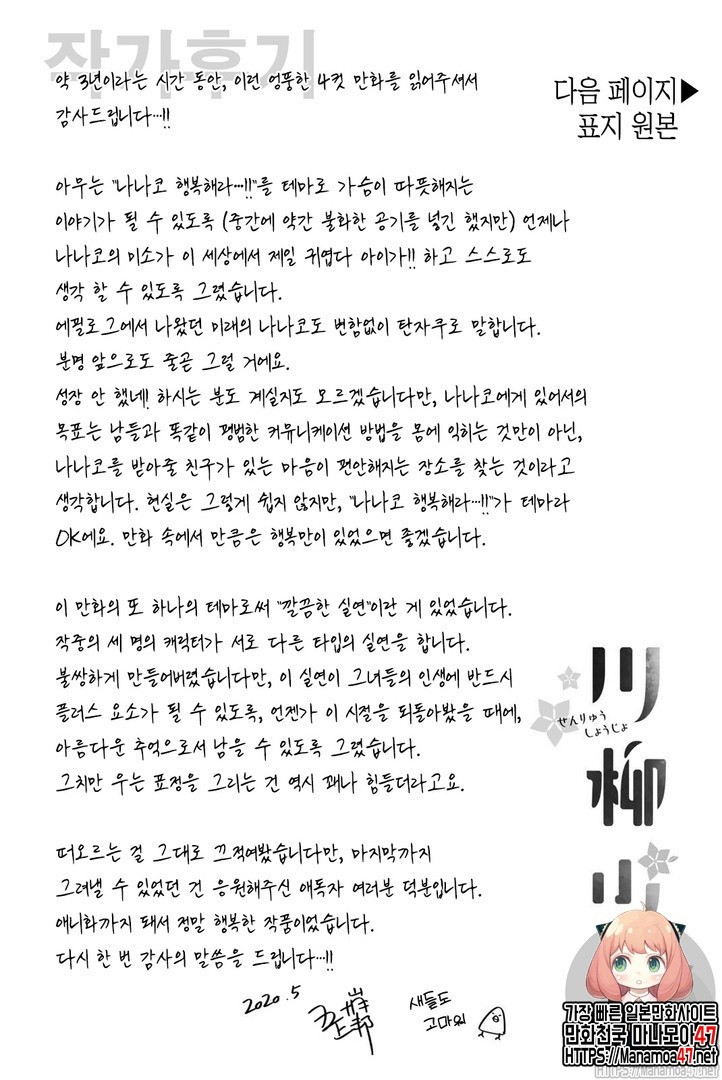 작가후기
약 3년이라는 시간 동안, 이런 엉뚱한 4컷 만화를 읽어주셔서
감사드립니다…!!
다음 페이지▶
표지 원본
아무튼 "나나코 행복해라…!!"를 테마로 가슴이 따뜻해지는
이야기가 될 수 있도록 (중간에 약간 불화한 공기를 넣긴 했지만) 언제나
나나코의 미소가 이 세상에서 제일 귀엽다 아이가!! 하고 스스로도
생각 할 수 있도록 그렸습니다.
에필로그에서 나왔던 미래의 나나코도 변함없이 탄자쿠로 말합니다.
분명 앞으로도 줄곧 그럴 거에요.
성장 안 했네! 하시는 분도 계실지도 모르겠습니다만, 나나코에게 있어서의
목표는 남들과 똑같이 평범한 커뮤니케이션 방법을 몸에 익히는 것만이 아닌,
나나코를 받아줄 친구가 있는 마음이 편안해지는 장소를 찾는 것이라고
생각합니다. 현실은 그렇게 쉽지 않지만, "나나코 행복해라…!!"가 테마라
OK에요. 만화 속에서 만큼은 행복만이 있었으면 좋겠습니다.
이 만화의 또 하나의 테마로써 "깔끔한 실연"이란 게 있었습니다.
작중의 세 명의 캐릭터가 서로 다른 타입의 실연을 합니다.
불쌍하게 만들어버렸습니다만, 이 실연이 그녀들의 인생에 반드시
플러스 요소가 될 수 있도록, 언젠가 이 시절을 되돌아봤을 때에,
아름다운 추억으로서 남을 수 있도록 그렸습니다.
그치만 우는 표정을 그리는 건 역시 꽤나 힘들더라고요.
떠오르는 걸 그대로 끄적여봤습니다만, 마지막까지
그려낼 수 있었던 건 응원해주신 애독자 여러분 덕분입니다.
애니화까지 돼서 정말 행복한 작품이었습니다.
다시 한 번 감사의 말씀을 드립니다…!!
2020.5
새들도
고마워
川柳少
せんりゅう
しょうじょ
가장 빠른 일본만화사이트
만화천국 마나모아47
HTTPS://Manamoa47.net
HTTPS://Manamoa47.net